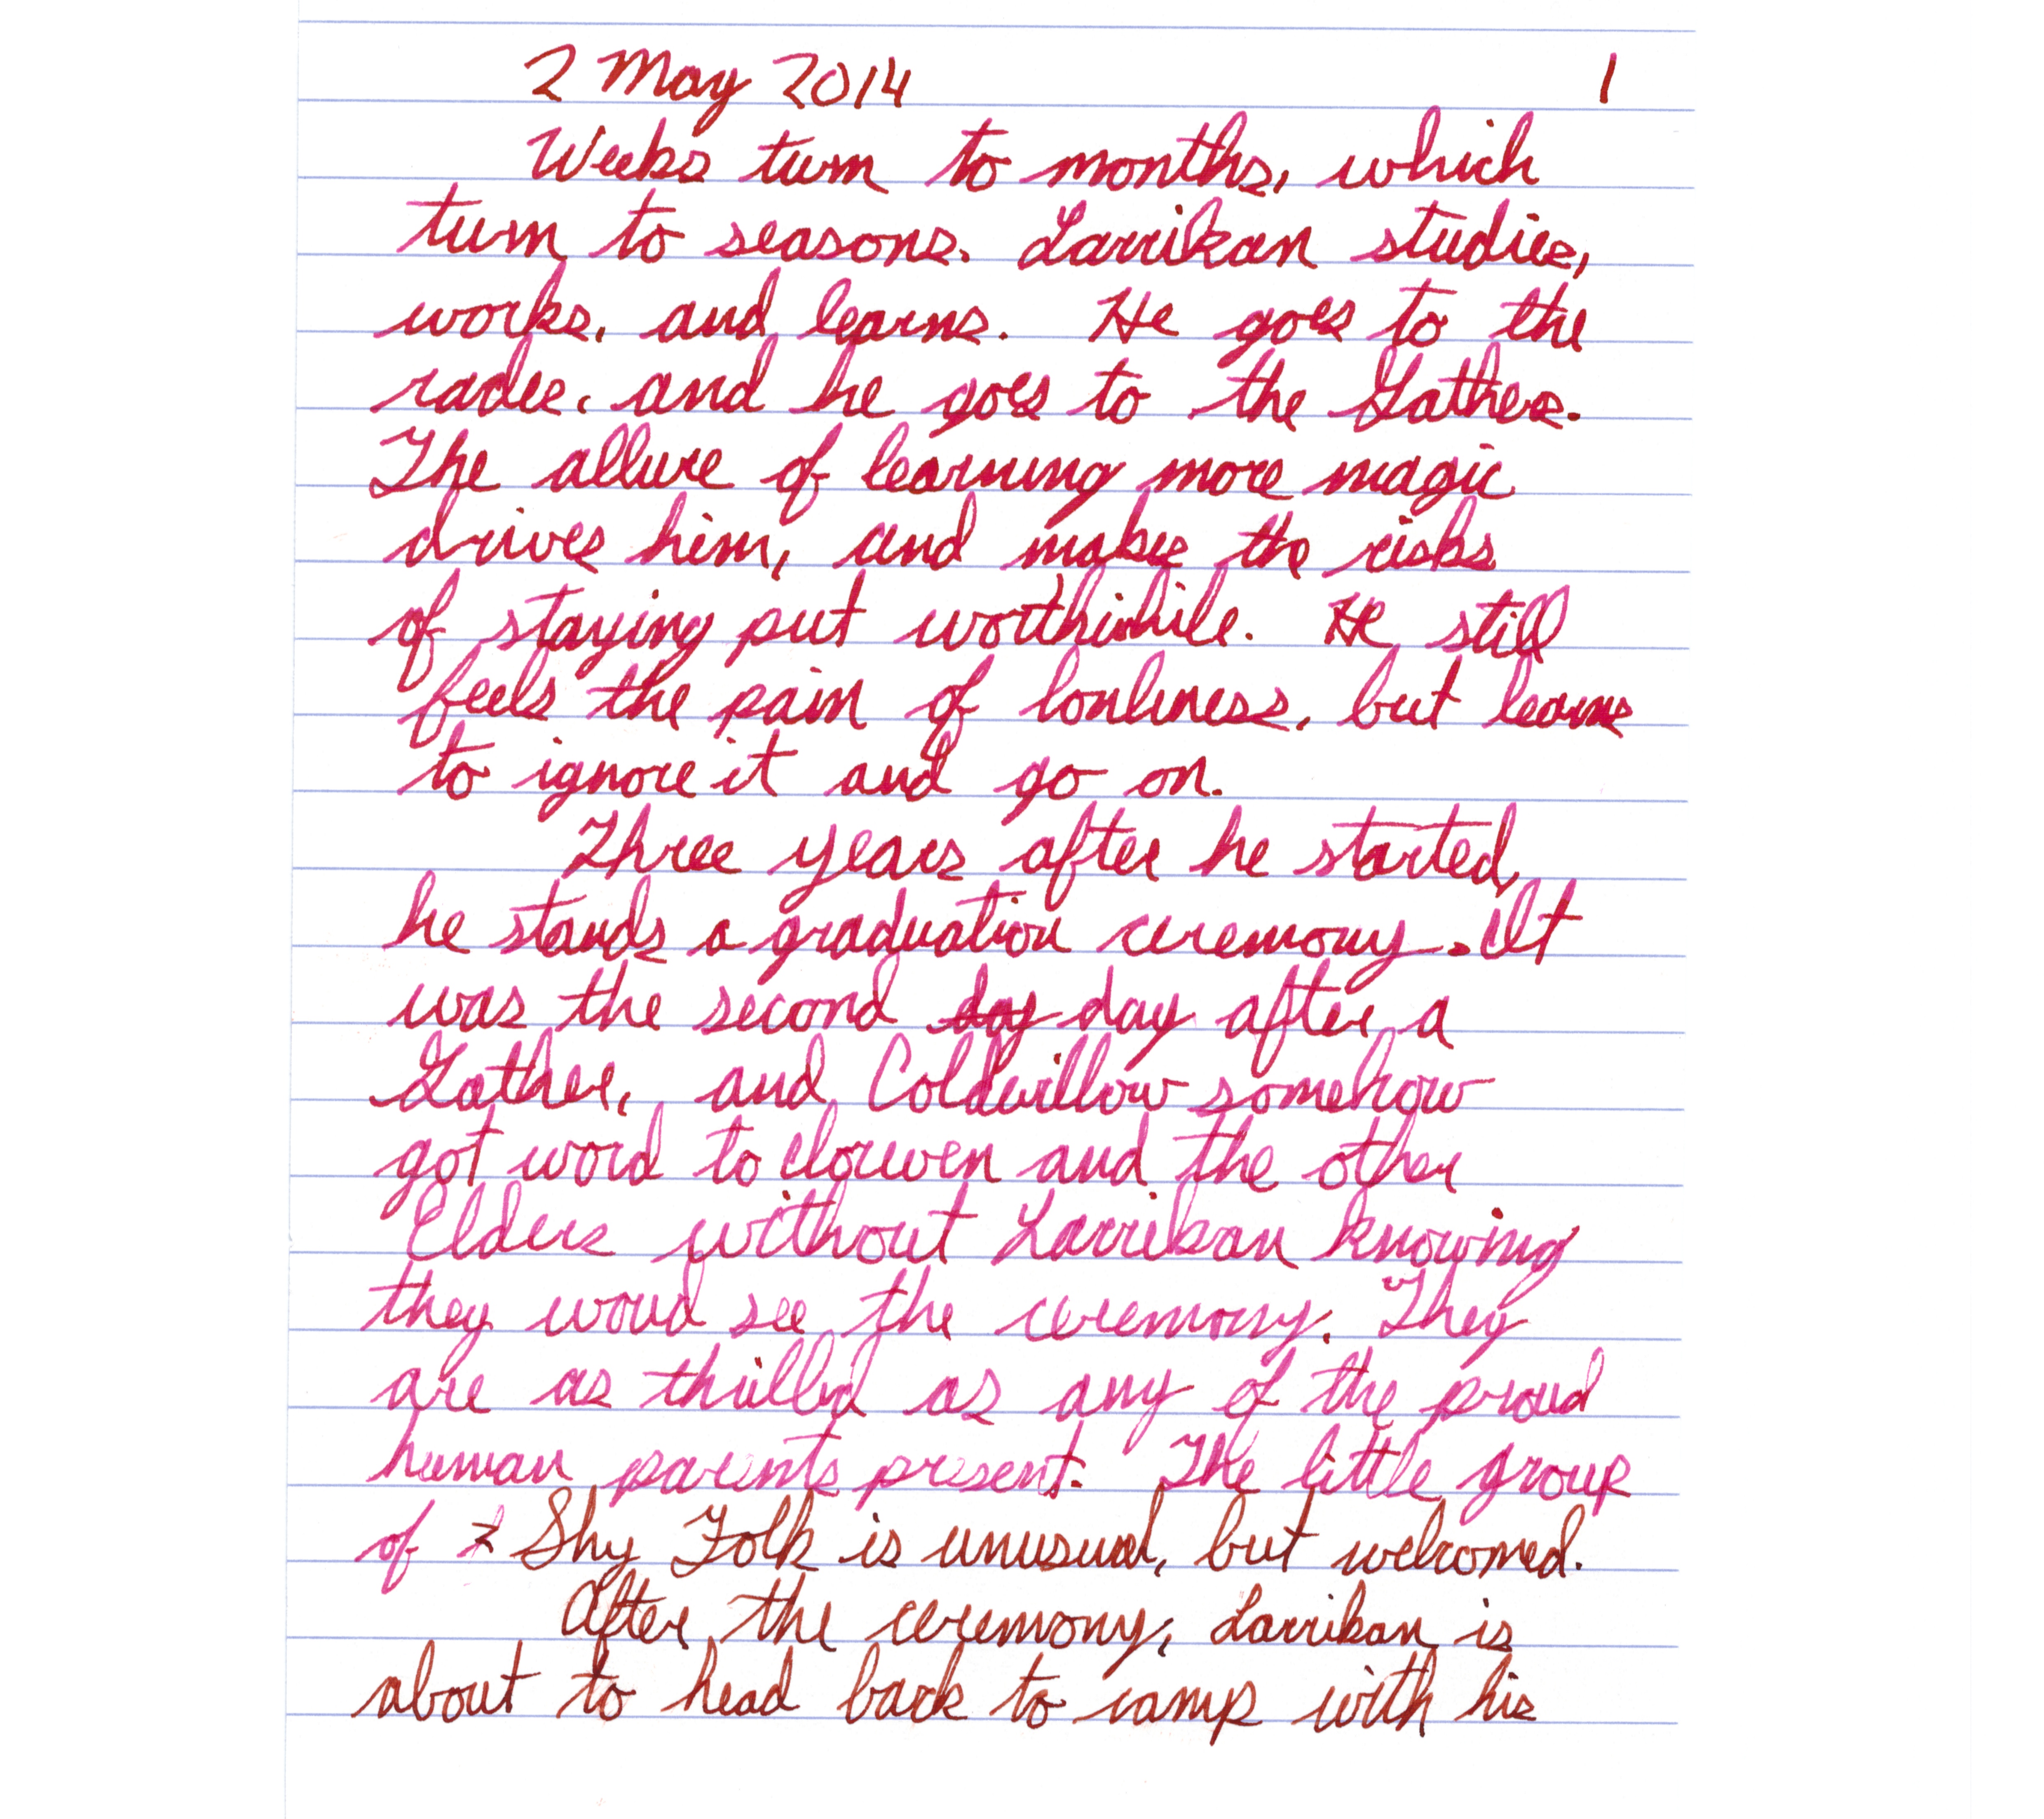 2 May 2014 1
Weeks turn to months, which
turn to seasons. Larrikan studies,
works, and learns. He goes to the
rades, and he goes to the Gathers.
The allure of learning more magic
drives him, and makes the risks
of staying put worthwhile. He still
feels the pain of lonliness, but learns
to ignore it and go on.
Three years after he started,
he stands a graduation ceremony. It
was the second day day after a
Gather, and Coldwillow somehow
got word to Clouwen and the other
Elders without Larrikan knowing
they woud see the ceremony. They
are as thrilled as any of the proud
human parents present. The little group
of Shy Folk is unusual, but welcomed.
After the ceremony, Larrikan is
about to head back to camp with his